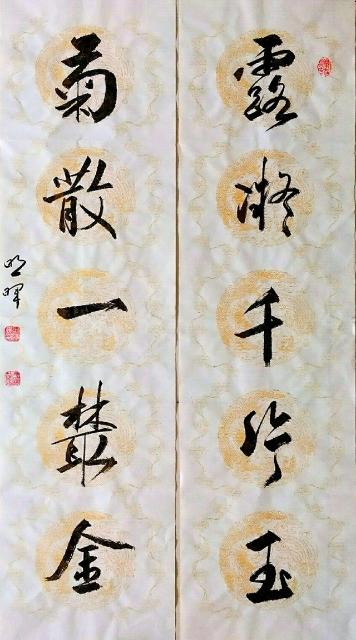 露凝千片玉
菊散一叢金
明暉